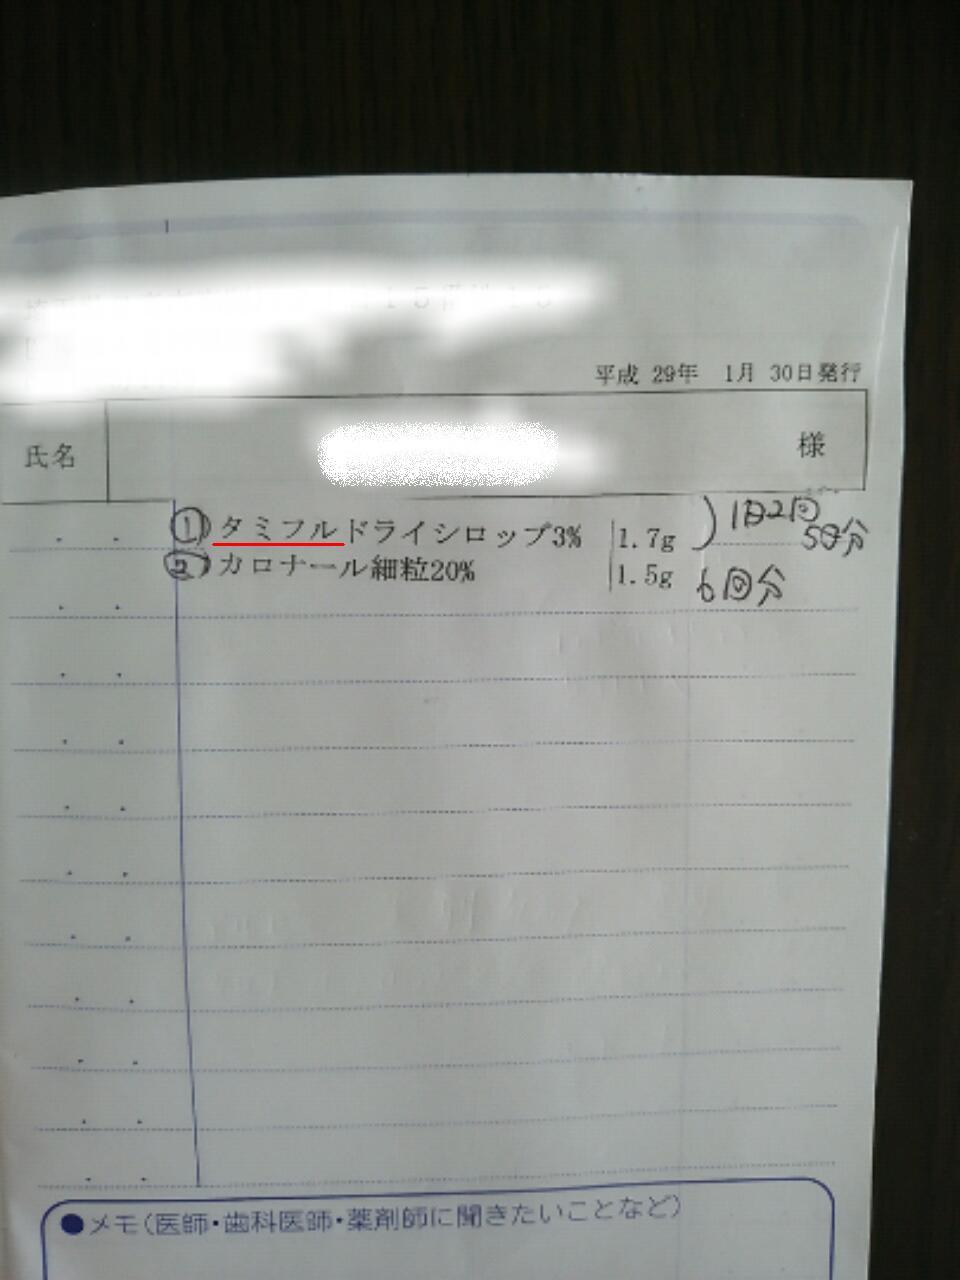 平成 29年 1月 30日発行
氏名 様
① タミフルドライシロップ3% 1.7g 1日2回 5日分
② カロナール細粒20% 1.5g 6回分
●メモ(医師・歯科医師・薬剤師に聞きたいことなど)